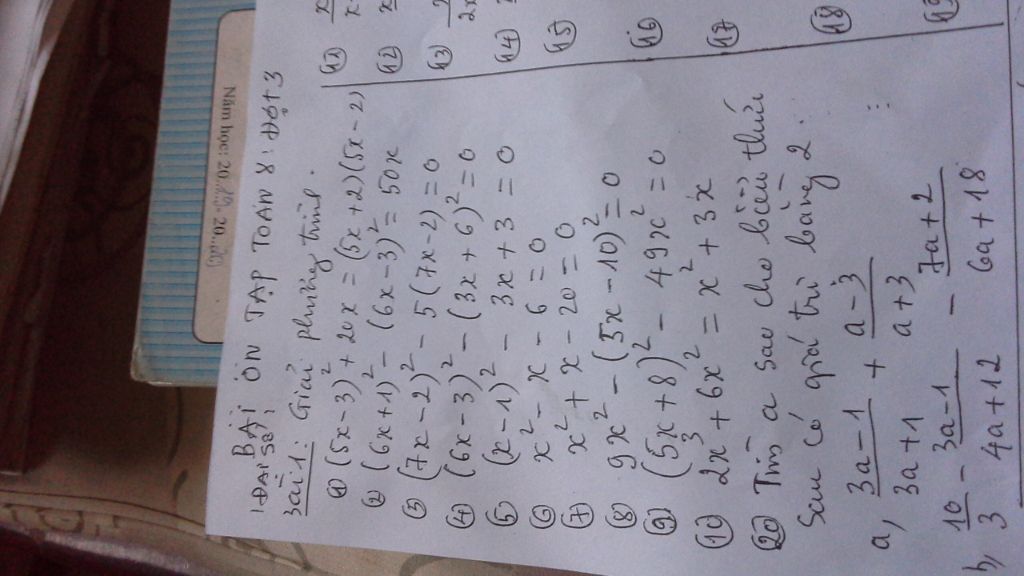 Năm học: 20... - 20...
BÀI ÔN TẬP TOÁN 8. Đợt 3
I. ĐẠI SỐ:
Bài 1: Giải phương trình.
① (5x-3)² + 20x = (5x+2)(5x-2)
② (6x+1)² - (6x-3)² = 50x
③ (7x-2)² - 5(7x-2) = 0
④ (6x-3)² - (3x+6)² = 0
⑤ (x-1)² - 3x + 3 = 0
⑥ x² - x - 6 = 0
⑦ x² + x - 20 = 0
⑧ 9x² - (5x-10)² = 0
⑨ (5x+8)² - 49x² = 0
⑩ 2x³ + 6x² = x² + 3x
⑳ Tìm a sao cho biểu thức
sau có giá trị bằng 2:
a, (3a-1)/(3a+1) + (a-3)/(a+3)
b, 10/3 - (3a-1)/(4a+12) - (7a+2)/(6a+18)
⑪
⑫
⑬
⑭
⑮
⑯
⑰
⑱
⑲